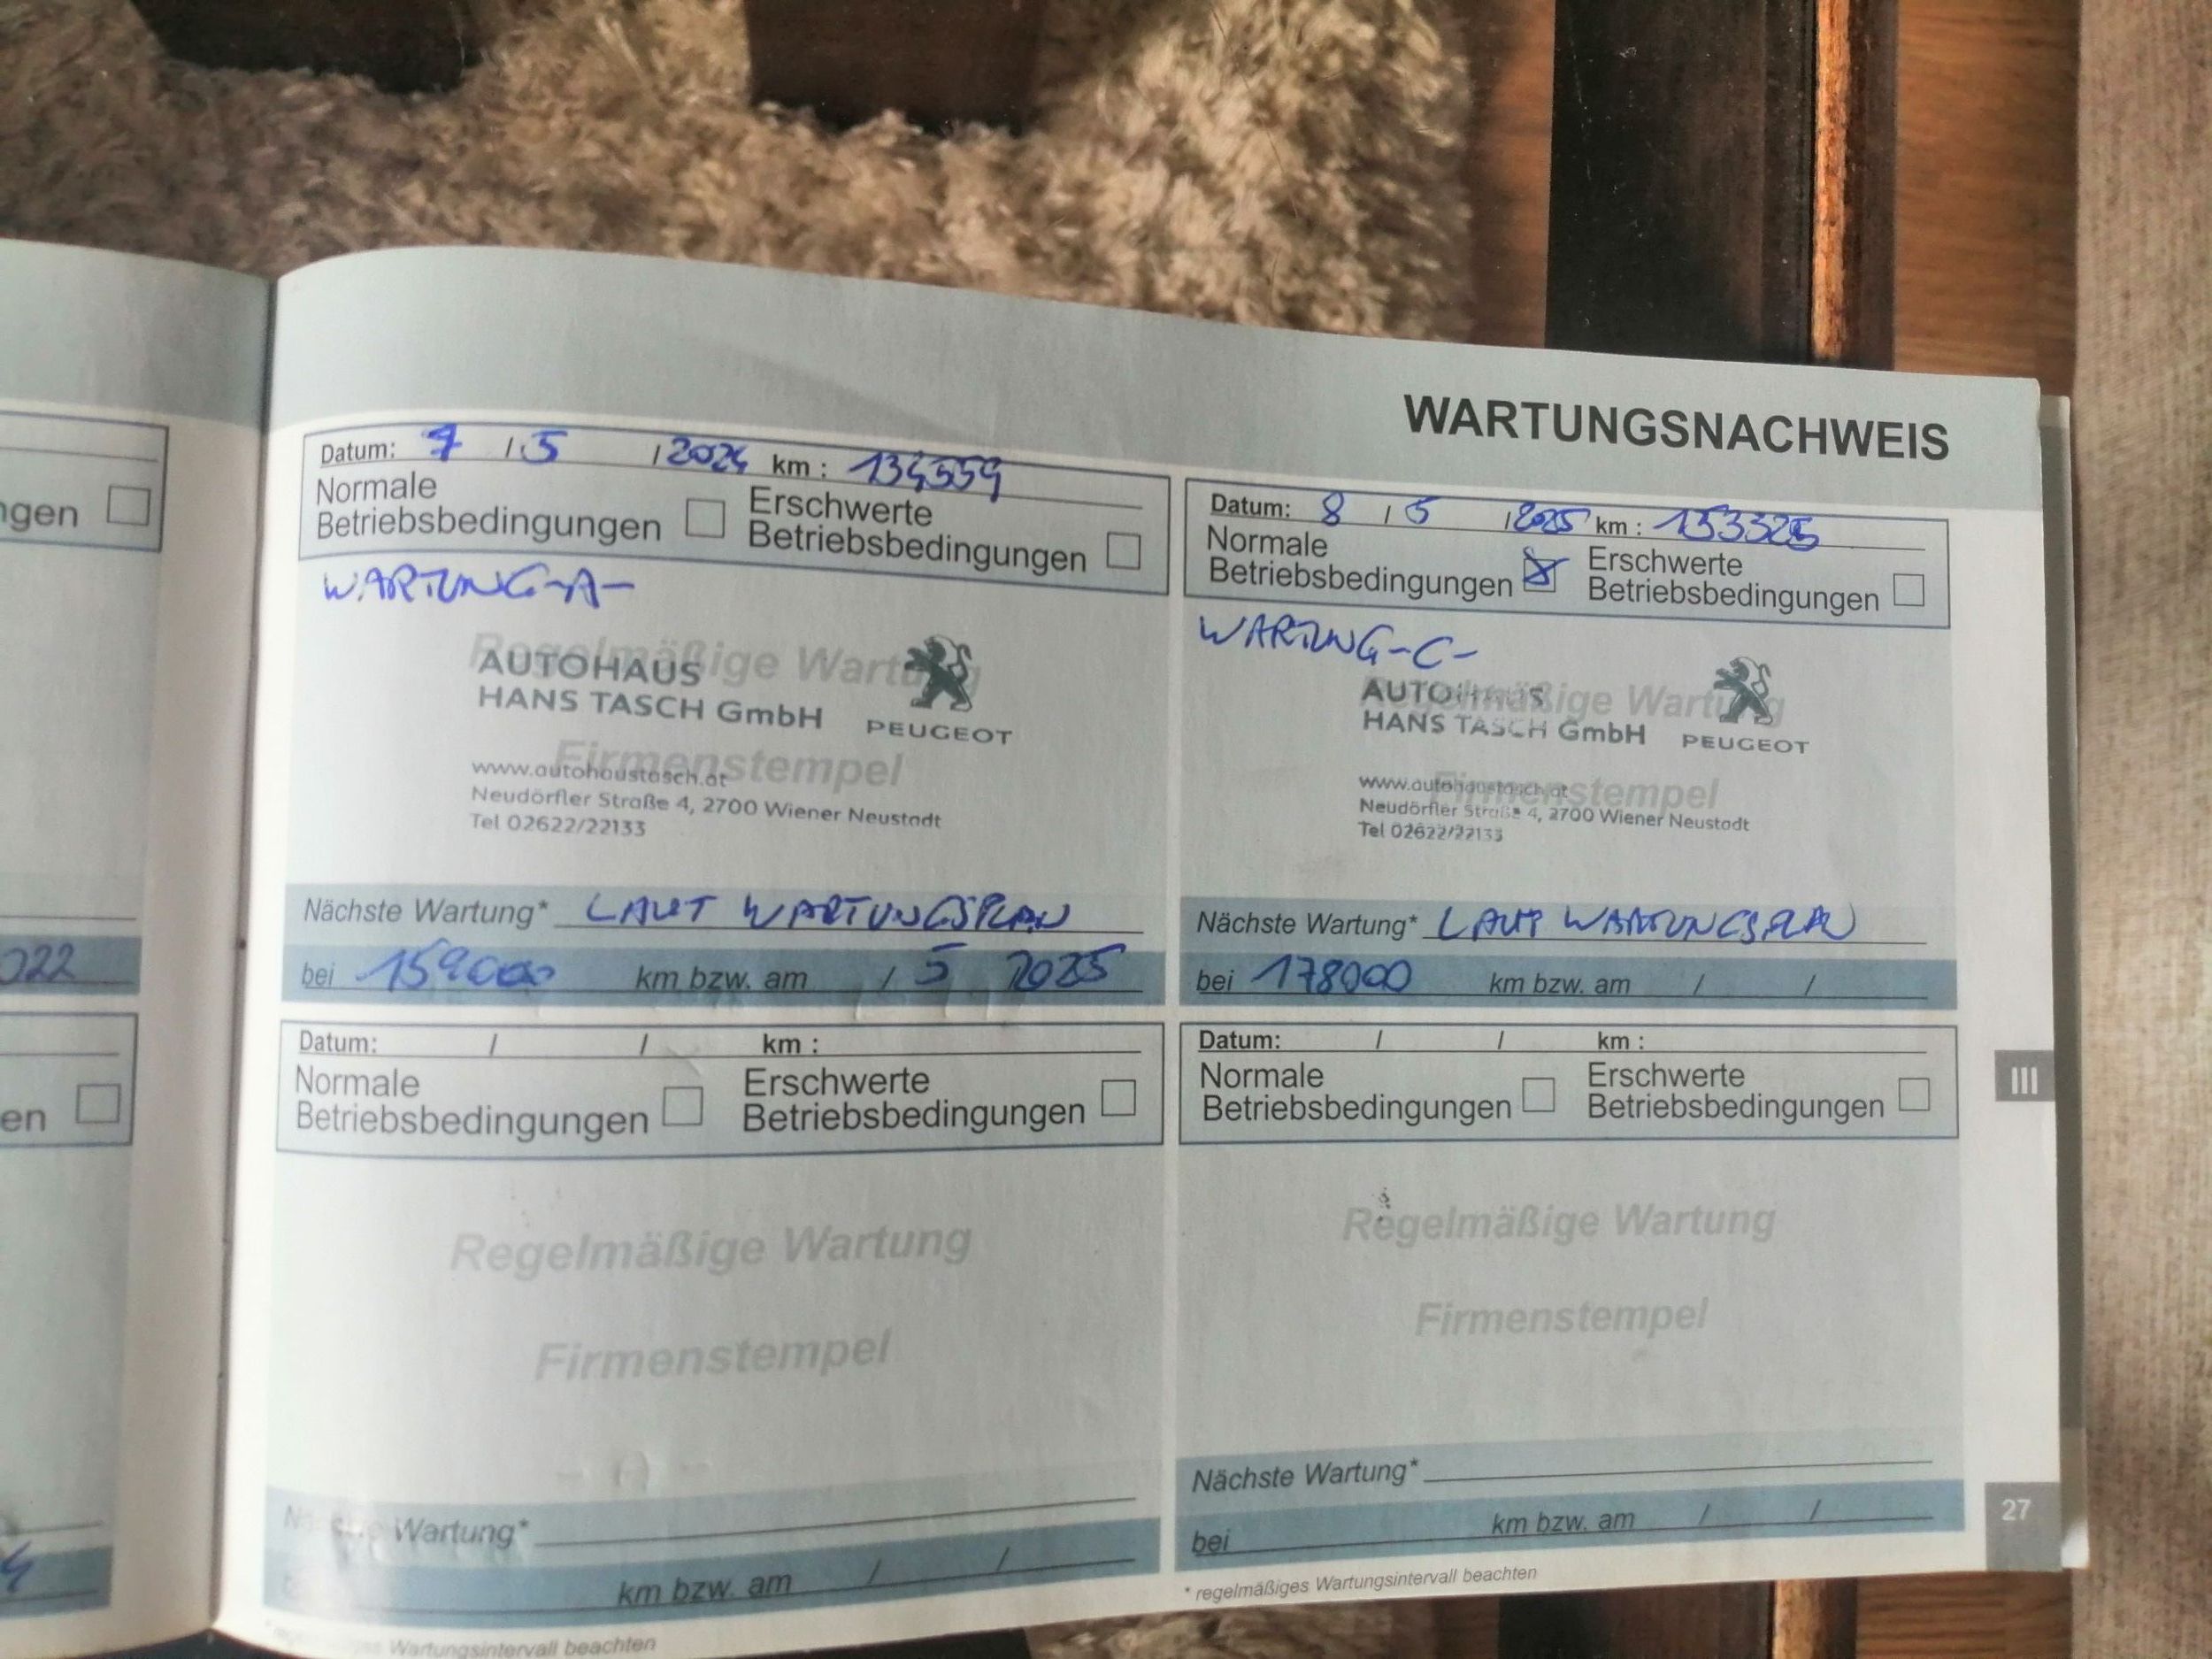 WARTUNGSNACHWEIS
ngen
022
en
4
Datum: 7 / 5 / 2024 km : 134559
Normale Betriebsbedingungen
Erschwerte Betriebsbedingungen
WARTUNG-A-
Regelmäßige Wartung
AUTOHAUS
HANS TASCH GmbH
PEUGEOT
Firmenstempel
www.autohaustasch.at
Neudörfler Straße 4, 2700 Wiener Neustadt
Tel 02622/22133
Nächste Wartung* LAUT WARTUNGSPLAN
bei 159000 km bzw. am / 5 2025
Datum: 8 / 5 / 2025 km : 153325
Normale Betriebsbedingungen
Erschwerte Betriebsbedingungen
WARTUNG-C-
Regelmäßige Wartung
AUTOHAUS
HANS TASCH GmbH
PEUGEOT
Firmenstempel
www.autohaustasch.at
Neudörfler Straße 4, 2700 Wiener Neustadt
Tel 02622/22133
Nächste Wartung* LAUT WARTUNGSPLAN
bei 178000 km bzw. am / /
Datum: / / km :
Normale Betriebsbedingungen
Erschwerte Betriebsbedingungen
Regelmäßige Wartung
Firmenstempel
Wartung*
km bzw. am / /
Wartungsintervall beachten
Datum: / / km :
Normale Betriebsbedingungen
Erschwerte Betriebsbedingungen
Regelmäßige Wartung
Firmenstempel
Nächste Wartung*
bei km bzw. am / /
* regelmäßiges Wartungsintervall beachten
III
27